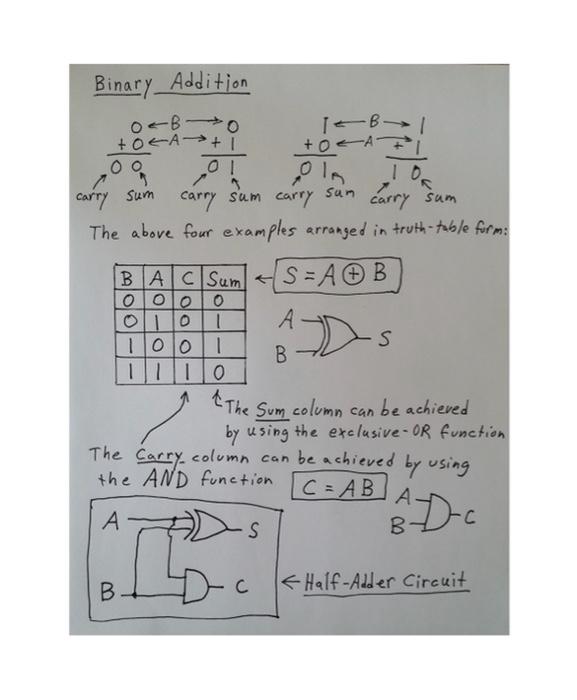 Binary Addition
0 ← B → 0 1 ← B → 1
+ 0 ← A → + 1 + 0 ← A → + 1
0 0 0 1 0 1 1 0
carry sum carry sum carry sum carry sum
The above four examples arranged in truth-table form:
B A C Sum ← S = A ⊕ B
0 0 0 0
0 1 0 1
1 0 0 1
1 1 1 0
A
B
S
The Sum column can be achieved
by using the exclusive-OR function
The Carry column can be achieved by using
the AND function C = AB
A
B
C
A S
B C
← Half-Adder Circuit